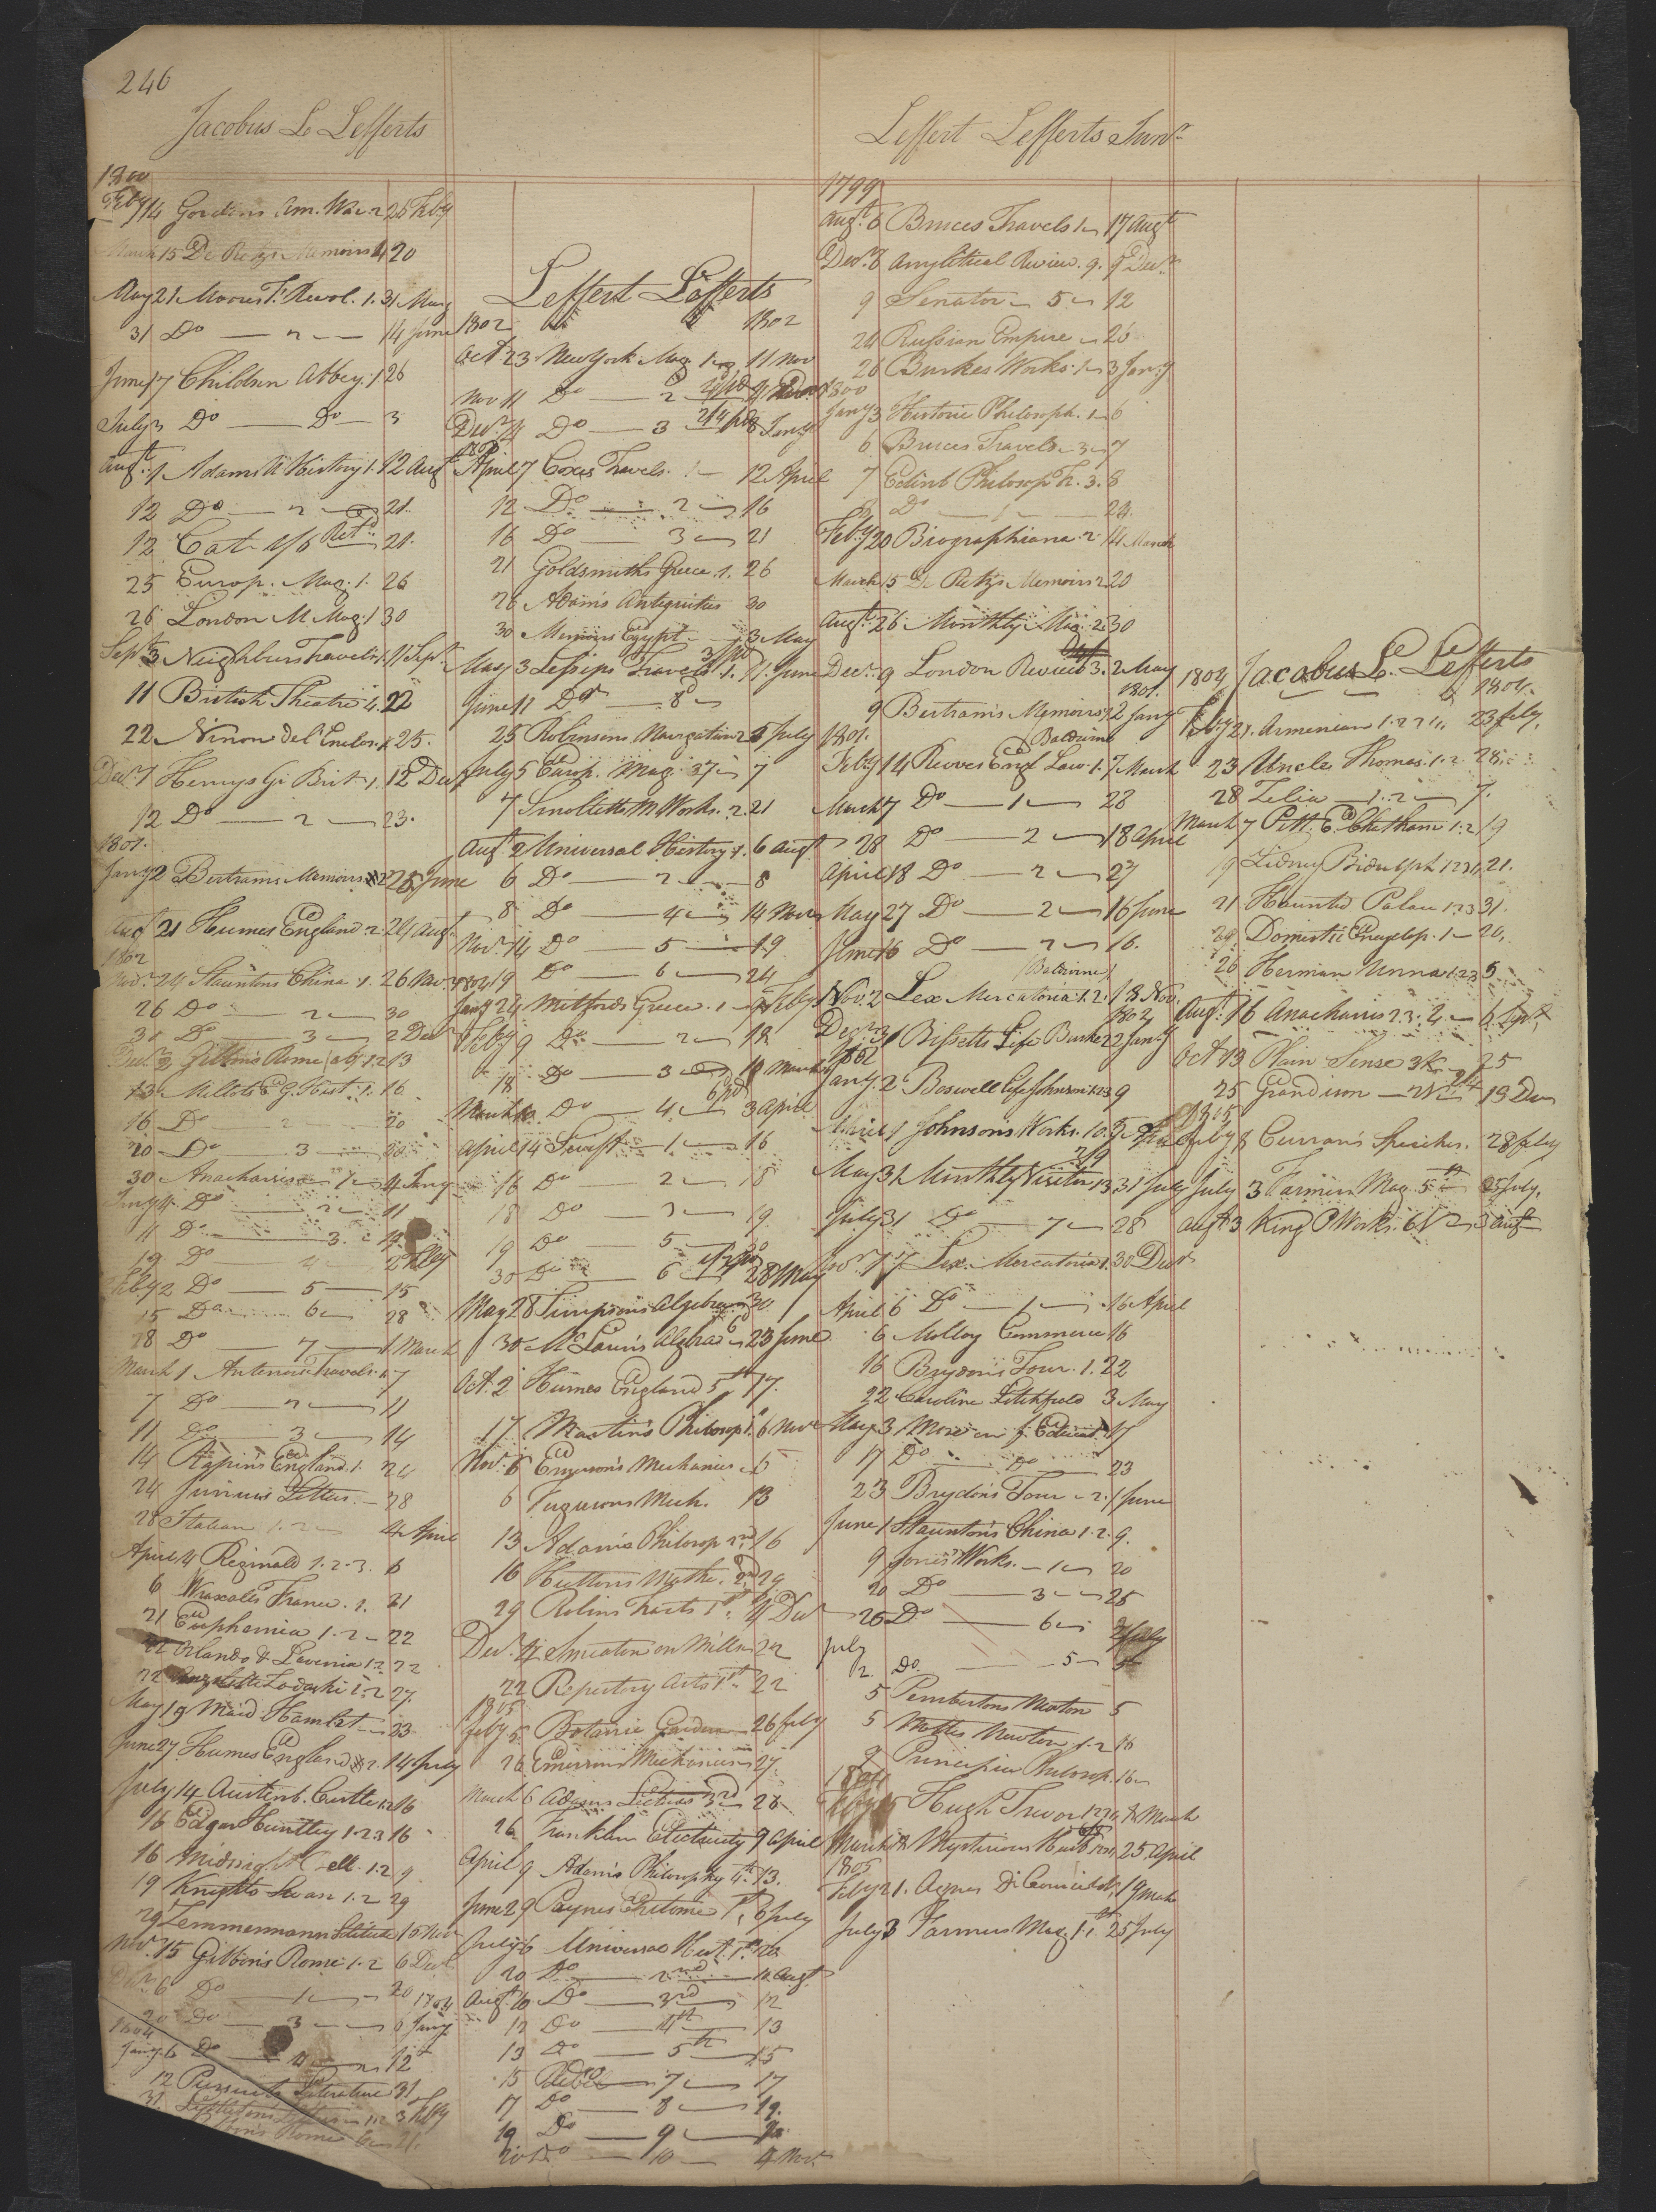 246
Jacobus L Lefferts
1800
Feby 14 Gordons Am. War 2 25 Feby
March 15 De Retz's Memoirs 4 20
May 21 Moores F. Revol. 1. 31 May
31 Do — 2 — 14 June
June 17 Children Abbey. 1 26
July 3 Do — Do — 3
Augt. 1 Adams N History 1. 12 Augt
12 Do — 2 — 21.
12 Cat. 1/6 Retd. 21.
25 Europ. Mag. 1. 26
26 London M Mag. 1 30
Sept. 3 Neighburs Travels. 1. 11 Sept.
11 British Theatre 4. 22
22 Ninon del Enclos. 1. 25.
Decr. 7 Henrys Gr Brit. 1. 12 Decr
12 Do — 2 — 23.
1801.
Jany 2 Bertrams Memoirs 2 28 June
Augt 21 Humes England 2. 24 Augt.
1802
Novr. 24 Stauntons China 1. 26 Novr.
26 Do — 2 — 30
30 Do — 3 — 2 Decr
Decr. 2 Gibbons Rome 1.2 13
13 Millots Eg. Hist. 1. 16
16 Do — 2 — 20
20 Do — 3 — 30
30 Anacharsis — 1 — 4 Jany
Jany 4 Do — 2 — 11
11 Do — 3 — 19
19 Do — 4 — 2 Feby
Feby 2 Do — 5 — 15
15 Do — 6 — 28
28 Do — 7 — 1 March
March 1 Antenors Travels. 1. 7
7 Do — 2 — 11
11 Do — 3 — 14
14 Rapins England. 1. 24
24 Junius Letters. — 28
28 Italian 1.2 — 4 April
April 4 Reginald 1.2.3. 6
6 Wraxalls France. 1. 21
21 Euphemia 1.2 — 22
22 Orlando & Lavinia 1.2 22
22 Lodoski 1.2 27.
May 19 Maid Hamlet — 23
June 27 Humes England 2. 14 July
July 14 Austenb. Castle 1.2 16
16 Edgar Huntley 1.2.3 16
16 Midnight Bell. 1.2 9
19 Knights Swan 1.2 29
29 Zemmermann Solitude 15 Nov
Novr. 15 Gibbons Rome 1.2 6 Decr
Decr. 6 Do — 1 — 20
20 Do — 3 — 6 Jany 1804
1804
Jany. 6 Do — 4 — 12
12 Pursuits Literature 31
31 1.2 3 Feby
Rome 6 21.
Leffert Lefferts
1802 1802
Oct. 23 New York Mag. 1 — 11 Nov
Nov 11 Do — 2 4 Decr
Decr. 4 Do — 3 8 Jany.
1803
April 7 Coxes Travels. 1 — 12 April
12 Do — 2 — 16
16 Do — 3 — 21
21 Goldsmiths Greece. 1. 26
26 Adams Antiquities 30
30 Memoirs Egypt — 3 May
May 3 Lesseps Travels 1. 11 June
June 11 Do — 2 —
25 Robinsons Navigation 2 5 July
July 5 Europ. Mag. 37 — 7
7 Smolletts M Works. 2. 21
Augt 2 Universal History 1. 6 Augt
6 Do — 2 — 8
8 Do — 4 — 14 Novr
Novr. 14 Do — 5 — 19
19 Do — 6 — 24
1804
Jany 24 Mitfords Greece. 1 — 9 Feby
Feby 9 Do — 2 — 18
18 Do — 3 — 10 March
March 10 Do — 4 — 3 April
April 14 Swift — 1 — 16
16 Do — 2 — 18
18 Do — 3 — 19
19 Do — 5 — 30
30 Do — 6 — 28 May
May 28 Simpsons Algebra — 30
30 McLaurins Algebra — 23 June
Oct. 2 Humes England 5th 17.
17 Martins Philosop 1. 6 Novr
Novr. 6 Emersons Mechanics — 6
6 Fugusons Mech. 13
13 Adams Philosop 2nd 16
16 Huttons Mathe. 2nd 29
29 Robins Tracts 1st. 4 Decr
Decr. 4 Smeaton on Mills 22
22 Repertory Arts 1st. 22
1805
Feby 5 Botanic Garden — 26 Feby
26 Emersons Mechanics — 27
March 6 Adams Lectures 3rd — 26
26 Franklin Electricity 9 April
April 9 Adams Philosophy 4th. 13.
June 29 Paynes Epitome 1st, 6 July
July 6 Universal Hist. 1st. 20.
20 Do — 2nd — 10 Augt
Augt. 10 Do — 3rd — 12
12 Do — 4th — 13
13 Do — 5th — 15
15 Do — 7 — 17
17 Do — 8 — 19.
19 Do — 9 — 20
20 Do — 10 — 4 Novr.
Leffert Lefferts Junr.
1799
Augt. 6 Bruces Travels 1 — 17 Augt
Decr. 8 Anylitical Review. 9. 9 Decr.
9 Senator — 5 — 12
24 Russian Empire — 26
26 Burkes Works. 1 — 3 Jany
1800
Jany 3 Historic Philosoph. 1 — 6
6 Bruces Travels — 3 — 7
7 Edinb Philosoph Tr. 3. 8
8 Do — 1 — 24.
Feby 20 Biographiana. 2. 14 March
March 15 De Retz's Memoirs 2 20
Augt. 26 Monthly Mag. 2. 30
Decr. 9 London Review 3. 2 May
1801.
9 Bertram's Memoirs 1. 2 Jany
1801. Baldwin
Feby 14 Reeves Engl Law. 1. 7 March
March 7 Do — 1 — 28
28 Do — 2 — 18 April
April 18 Do — 2 — 27
May 27 Do — 2 — 16 June
June 16 Do — 2 — 16.
(Baldwine)
Novr. 2 Lex Mercatoria 1.2. 18 Nov.
1802
Decr. 31 Bissetts Life Burke 2 2 Jany
1802
Jany. 2 Boswell Life Johnson 1.2.3 9
April 1 Johnson's Works. 10.
May 31 Monthly Visitor 13 31 July
July 31 Do — 7 — 28
Novr. 17 Lex. Mercatoria 1. 30 Decr
April 6 Do — 1 — 16 April
6 Molloy Commerce 16
16 Brydon's Tour. 1. 22
22 Caroline Litchfield 3 May
May 3 More on f. Educat. 17
17 Do — Do — 23
23 Brydon's Tour — 2. 1 June
June 1 Staunton's China 1.2. 9.
9 Jones Works. — 1 — 20
20 Do — 3 — 25
26 Do — 6 — 2 July
July
2. Do. — 5 — 5
5 Pembertons Newton 5
5 Mottes Newton 1.2 16
9 Principia Philosop. 16
1804
Feby Hugh Trevor 1.2.3.4 8 March
March 8 Mysterious Husb 25 April
1805
Feby 21. Agnes 19 March
July 3 Farmers Mag. 1st 25 July
1804 Jacobus L. Lefferts
1804.
Feby 21. Armenian 1.2 23 Feby.
23 Uncle Thomas. 1.2 28.
28 Zelia — 1.2 — 7.
March 7 Pitt E. Chatham 1.2 19
19 Sidney Bidulph 1.2.3 21.
21 Haunted Palace 1.2.3 31.
Domestic Encyclop. 1 — 20.
20 Herman Unna 1.2.3 5
Augt. 16 Anacharsis 2.3.4 — 6 Sept
Oct 13 Plain Sense 25
25 Grandison — 19 Decr
1805
Feby 8 Curran's Speeches. 28 Feby
July 3 Farmers Mag. 5th 25 July.
Augt 3 King P Works. 6 Augt